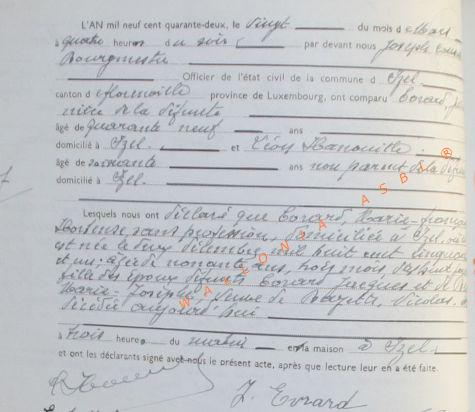 L'AN mil neuf cent quarante-deux, le vingt du mois d e Mars
à quatre heures du soir par devant nous Joseph
Bourgmestre
Officier de l'état civil de la commune d Izel
canton d e Florenville province de Luxembourg, ont comparu Evrard,
nièce de la défunte
âgé de quarante neuf ans
domicilié à Izel. et Léon Hanouille.
âgé de soixante ans non parent de la
domicilié à Izel.
Lesquels nous ont déclaré que Evrard, Marie-
Hortense, sans profession, domiciliée à Izel,
est née le deux décembre mil huit cent cinquante
et un: âgée de nonante ans, trois mois, dix huit
fille des époux défunts Evrard Jacques et de
Marie-Josèphe, veuve de Nicolas.
décédée aujourd'hui
trois heures du matin en la maison à Izel
et ont les déclarants signé avec nous le présent acte, après que lecture leur en a été faite.
J. Evrard
WALLONIA ASBL ®